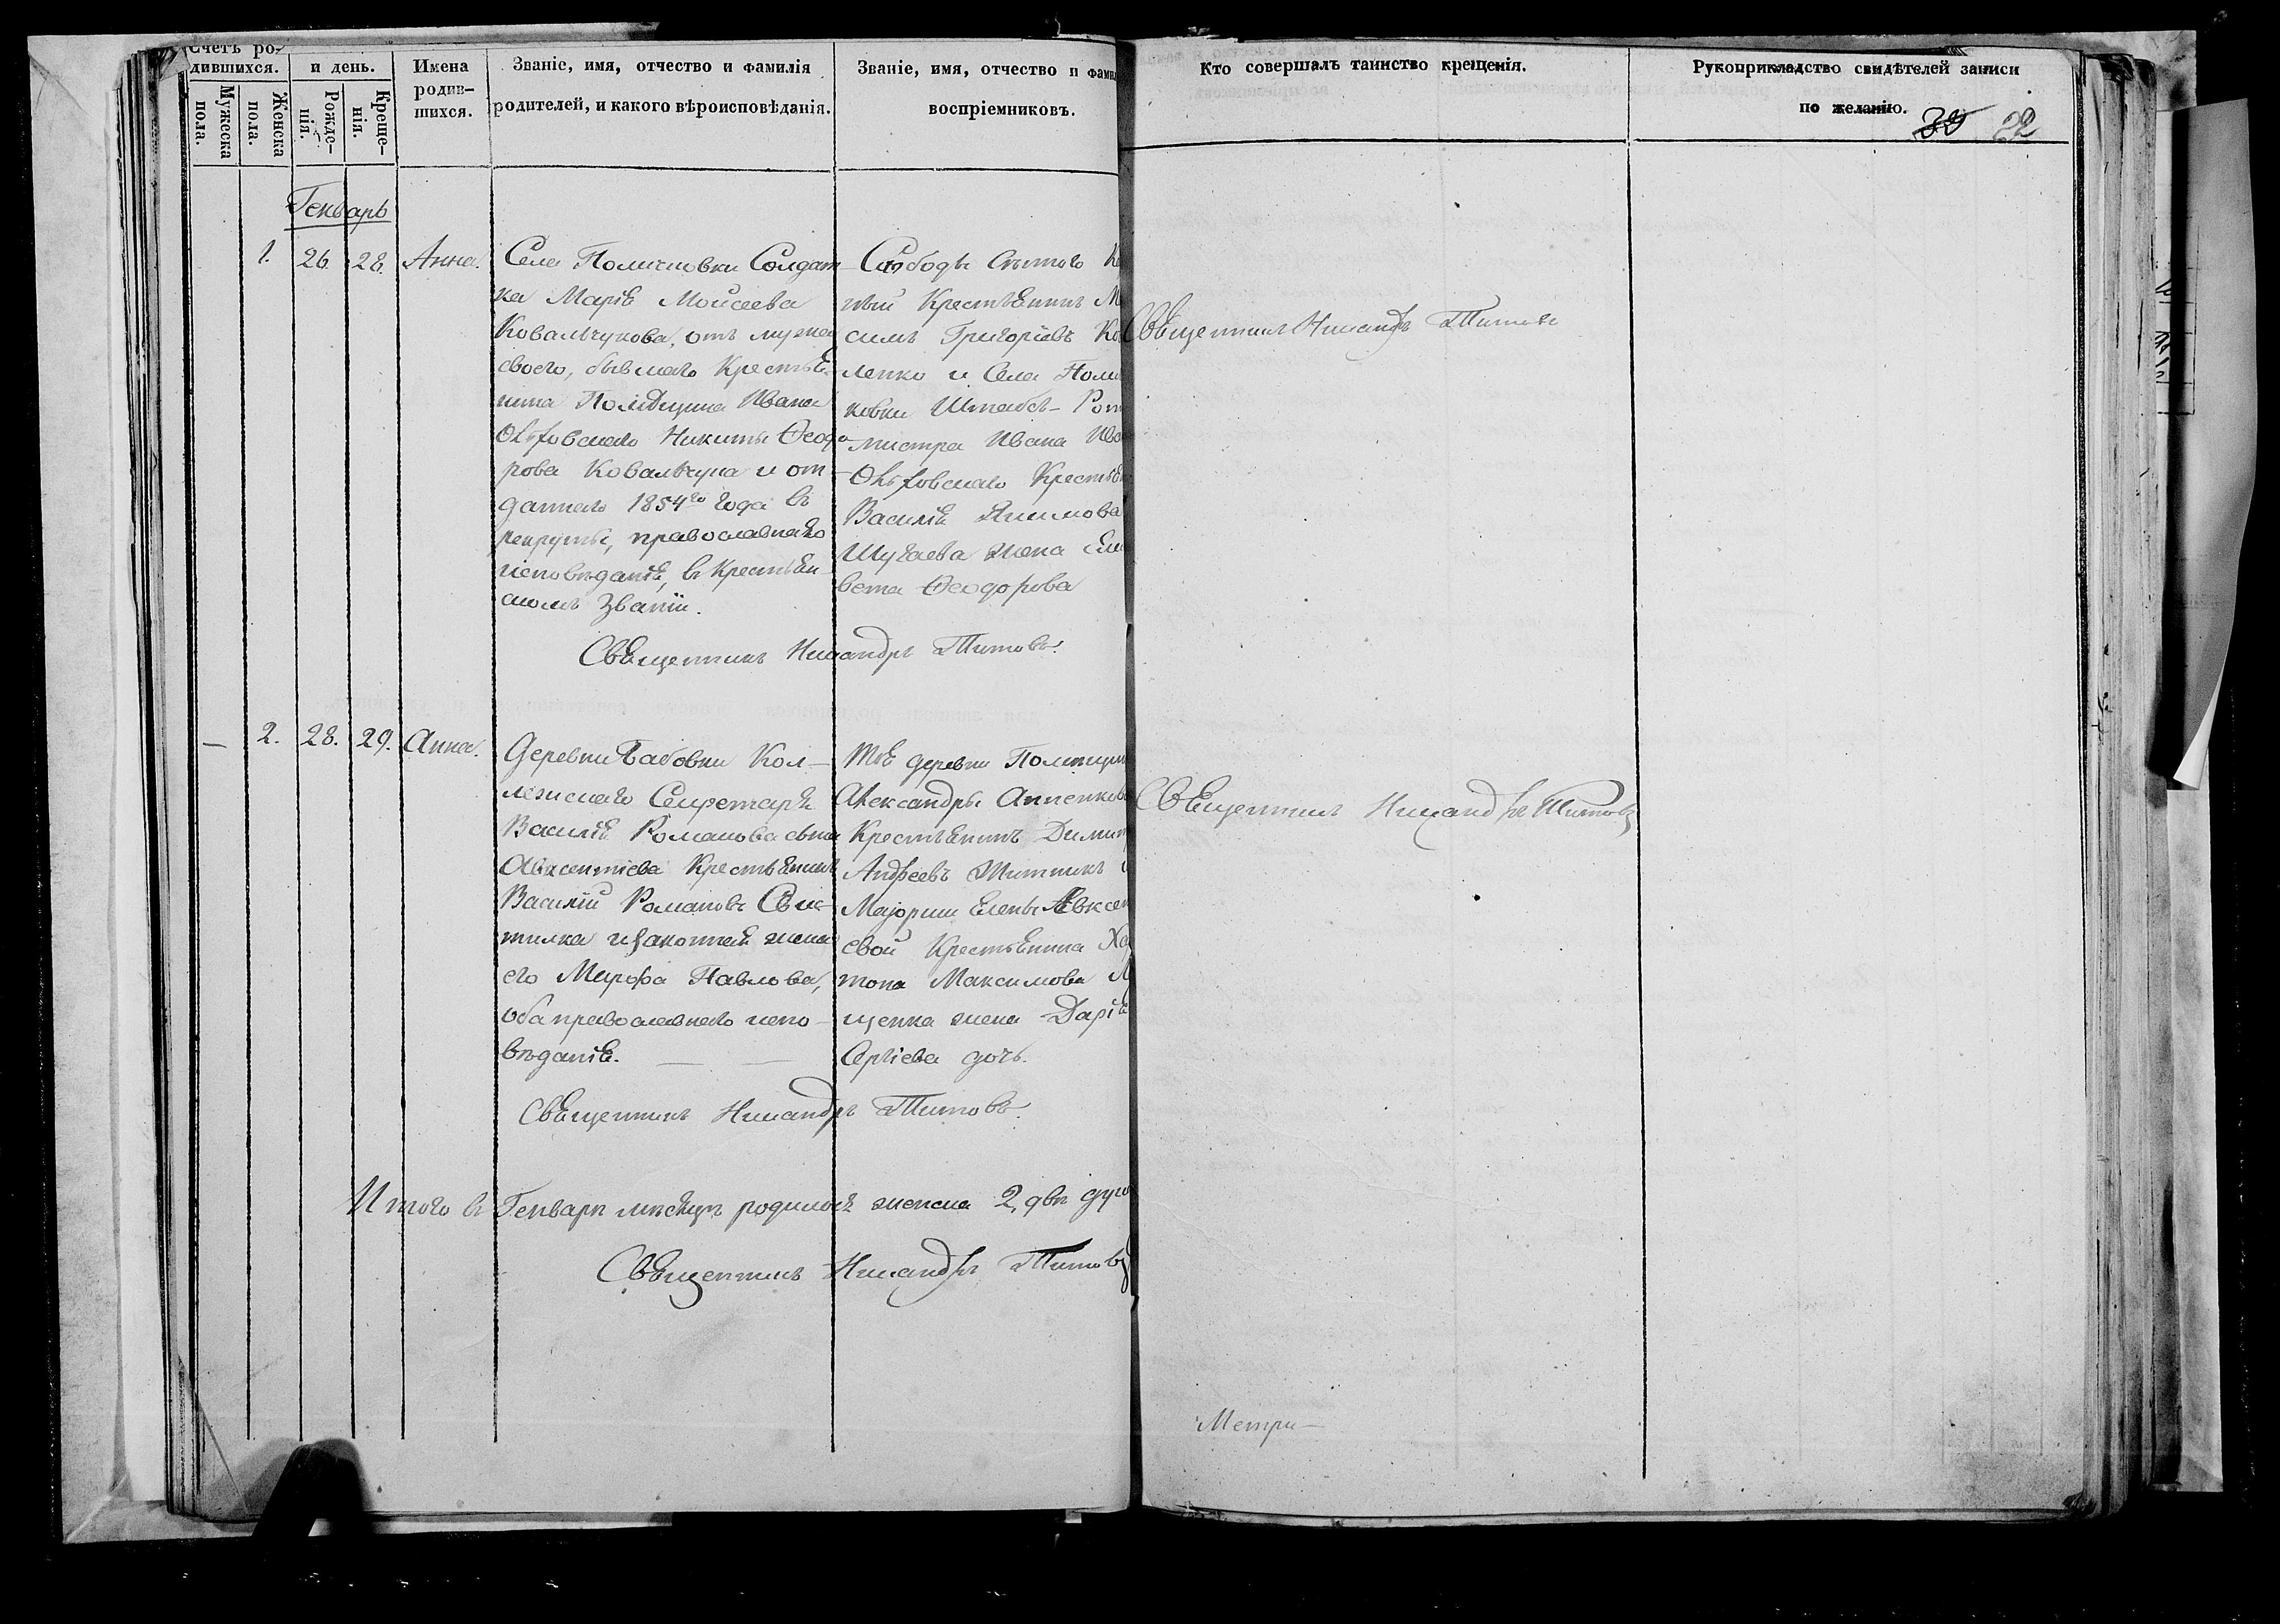 Счетъ ро-
дившихся.
и день.
Мужеска
пола.
Женска
пола.
Рожде-
нія.
Креще-
нія.
Имена
родив-
шихся.
Званіе, имя, отчество и фамилія
родителей, и какого вѣроисповѣданія.
Званіе, имя, отчество и фами
воспріемниковъ.
Кто совершалъ таинство крещенія.
Рукоприкладство свидѣтелей записи
по желанію.
39 22
Генварь
1. 26. 28. Анна.
Села Поличковки Солдат-
ка Марія Моисеева
Ковальчукова, отъ мужа
своего, бывшаго Крестья-
нина Помѣщика Ивана
Никиты Ѳеодо-
рова Ковальчука и от-
даннаго 1854го года въ
рекруты, православнаго
исповѣданія, въ крестьян-
скомъ званіи.
Слободы
ный Крестьянинъ М
симъ Григоріевъ Ко
ленко и Села Поли
ковки Штабсъ-Рот
мистра Ивана Ива
Крестьян
Василія Якимова
Шугаева жена Ели
вета Ѳеодорова
Священникъ Никандръ Титовъ.
Священникъ Никандръ Титовъ
— 2. 28. 29. Анна.
Деревни Бабовки Кол-
лежскаго Секретаря
Василія Романова сына
Авксентіева Крестьянинъ
Василій Романовъ Свис-
тилка и законная жена
его Марфа Павлова,
оба православнаго испо-
вѣданія.
Той деревни Помѣщи
Александры Анненково
Крестьянинъ Димит
Андреевъ Житникъ
Маіорши Елены Авксен
евой Крестьянина Ха
тона Максимова Л
щенка жена Дарія
Сергіева дочь.
Священникъ Никандръ Титовъ.
Священникъ Никандръ Титовъ
Итого въ Генварѣ мѣсяцѣ родилось женска 2, двѣ души
Священникъ Никандръ Титовъ
Метри-